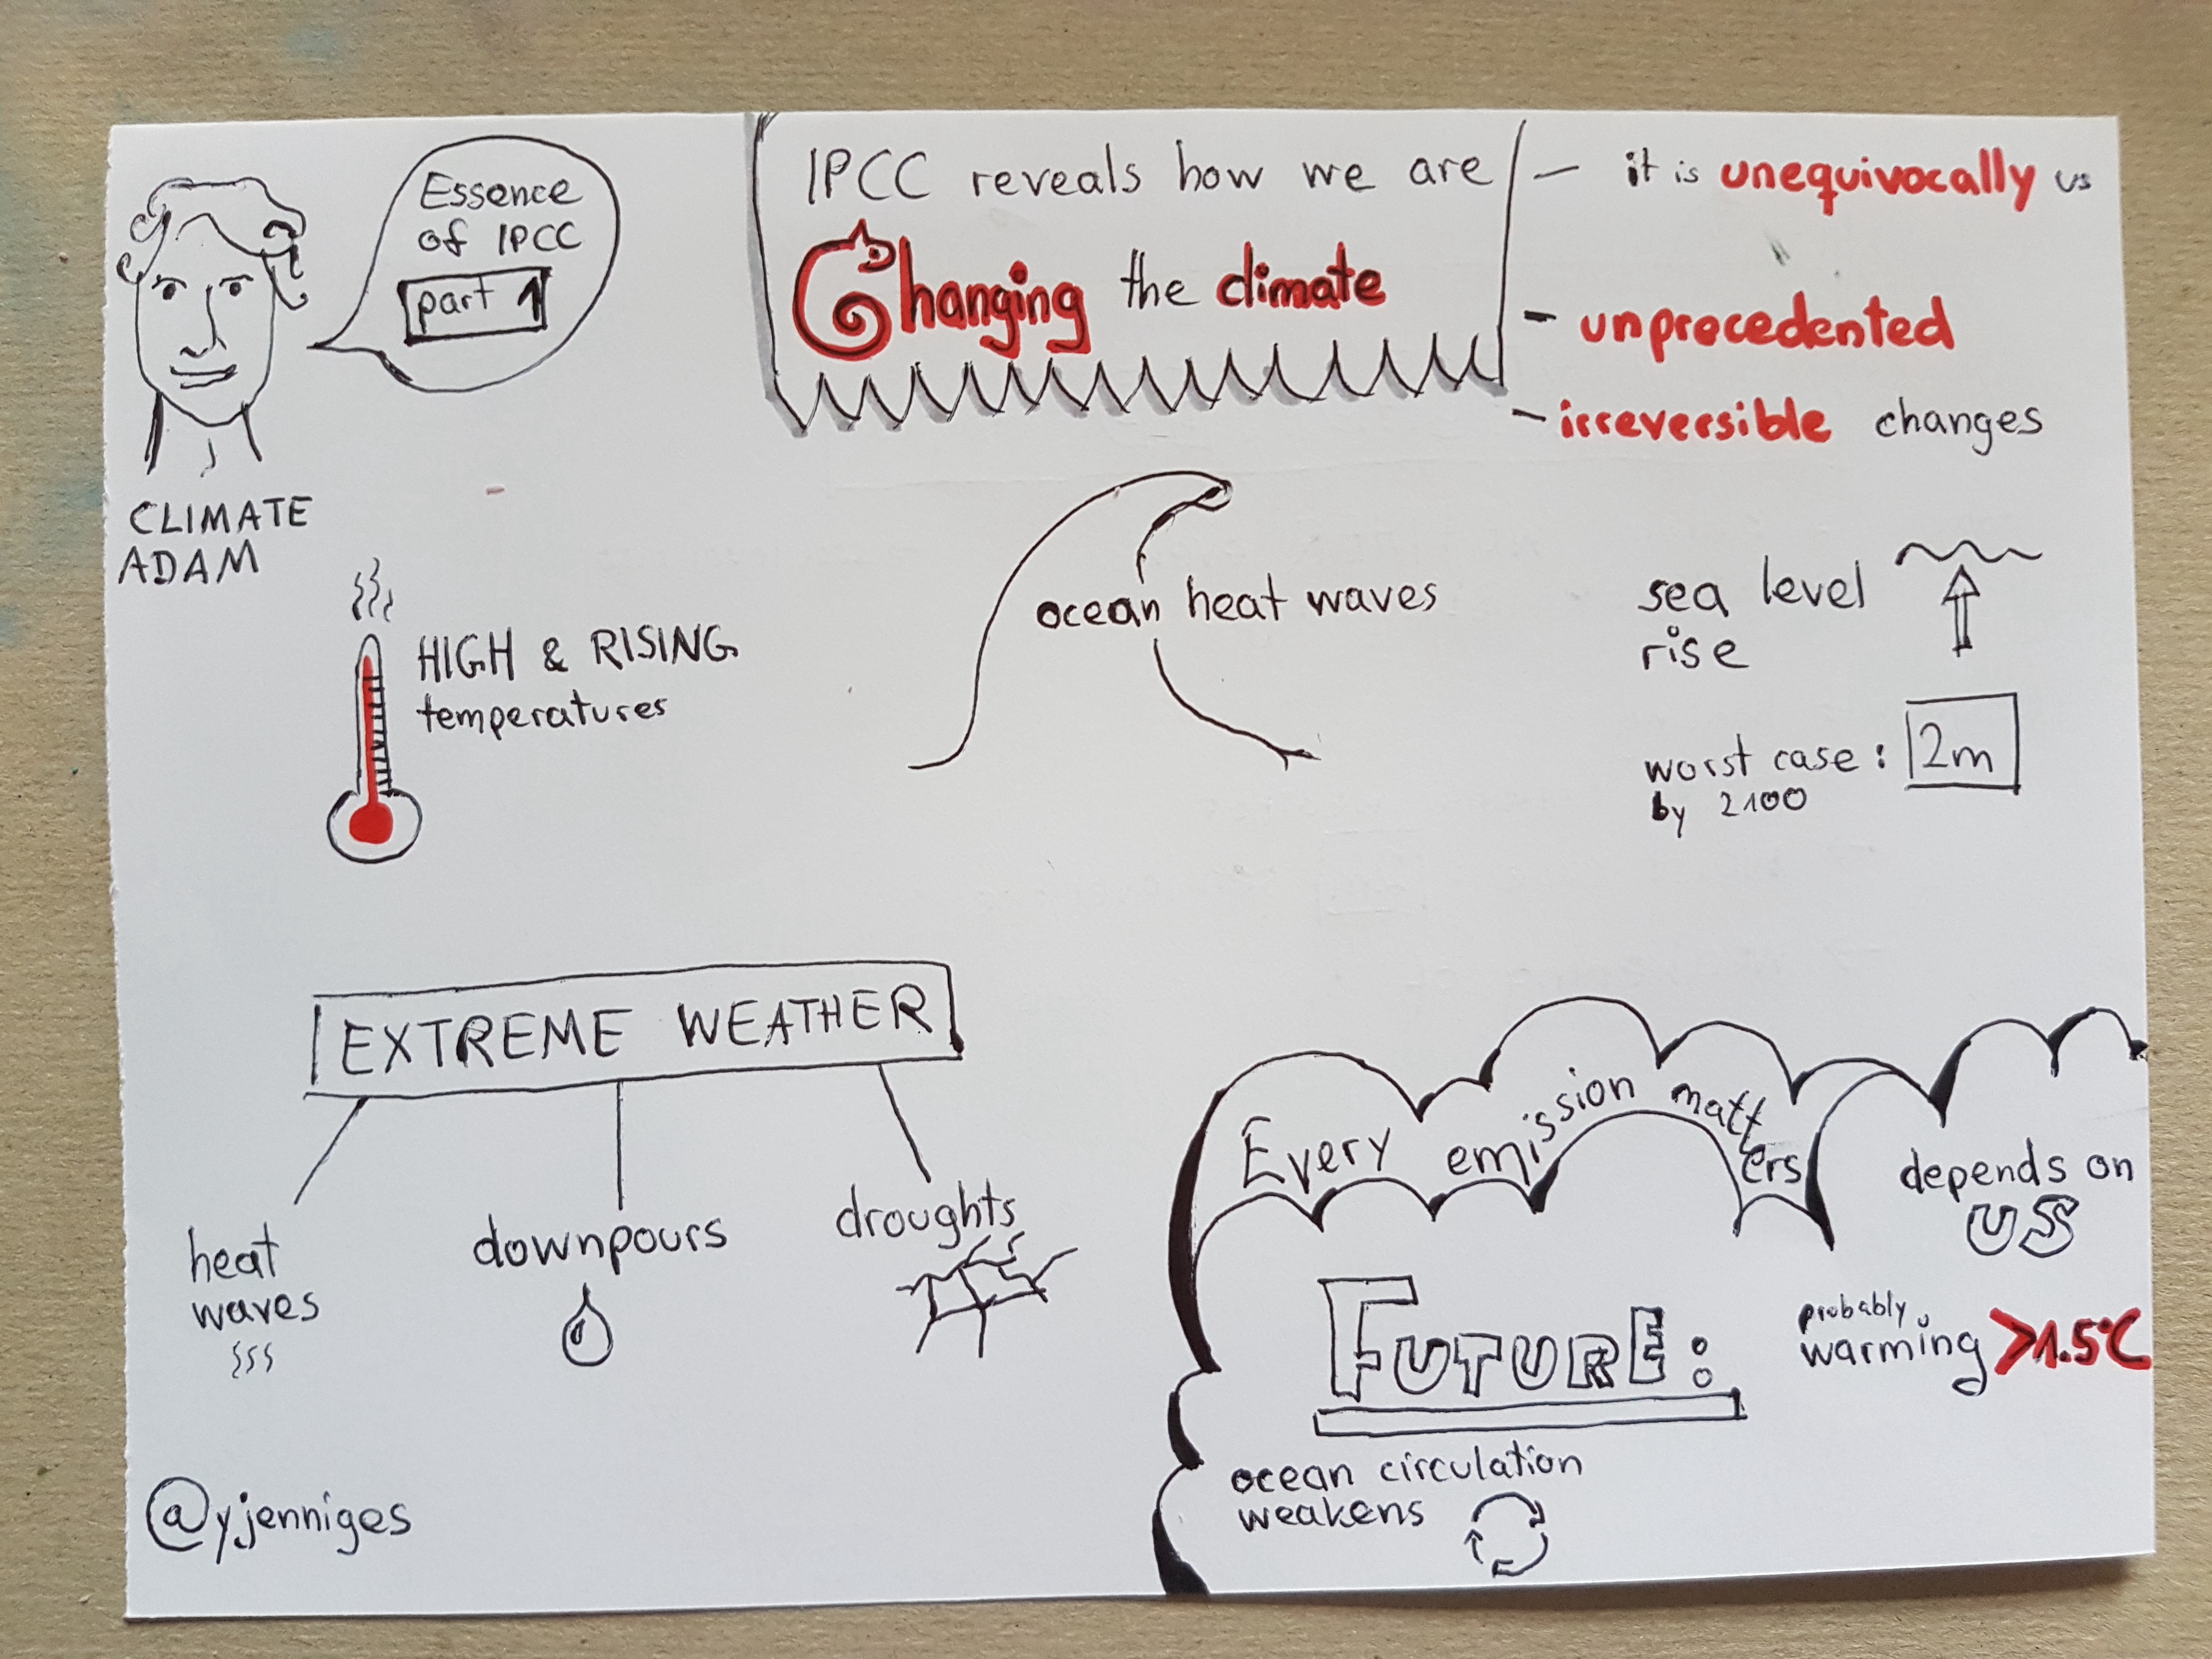 Essence
of IPCC
part 1
CLIMATE
ADAM
IPCC reveals how we are
Changing the climate
- it is unequivocally us
- unprecedented
- irreversible changes
HIGH & RISING
temperatures
ocean heat waves
sea level
rise
worst case: 2m
by 2100
EXTREME WEATHER
heat
waves
downpours
droughts
Every emission matters
depends on
US
FUTURE:
probably
warming >1.5°C
ocean circulation
weakens
@yjenniges